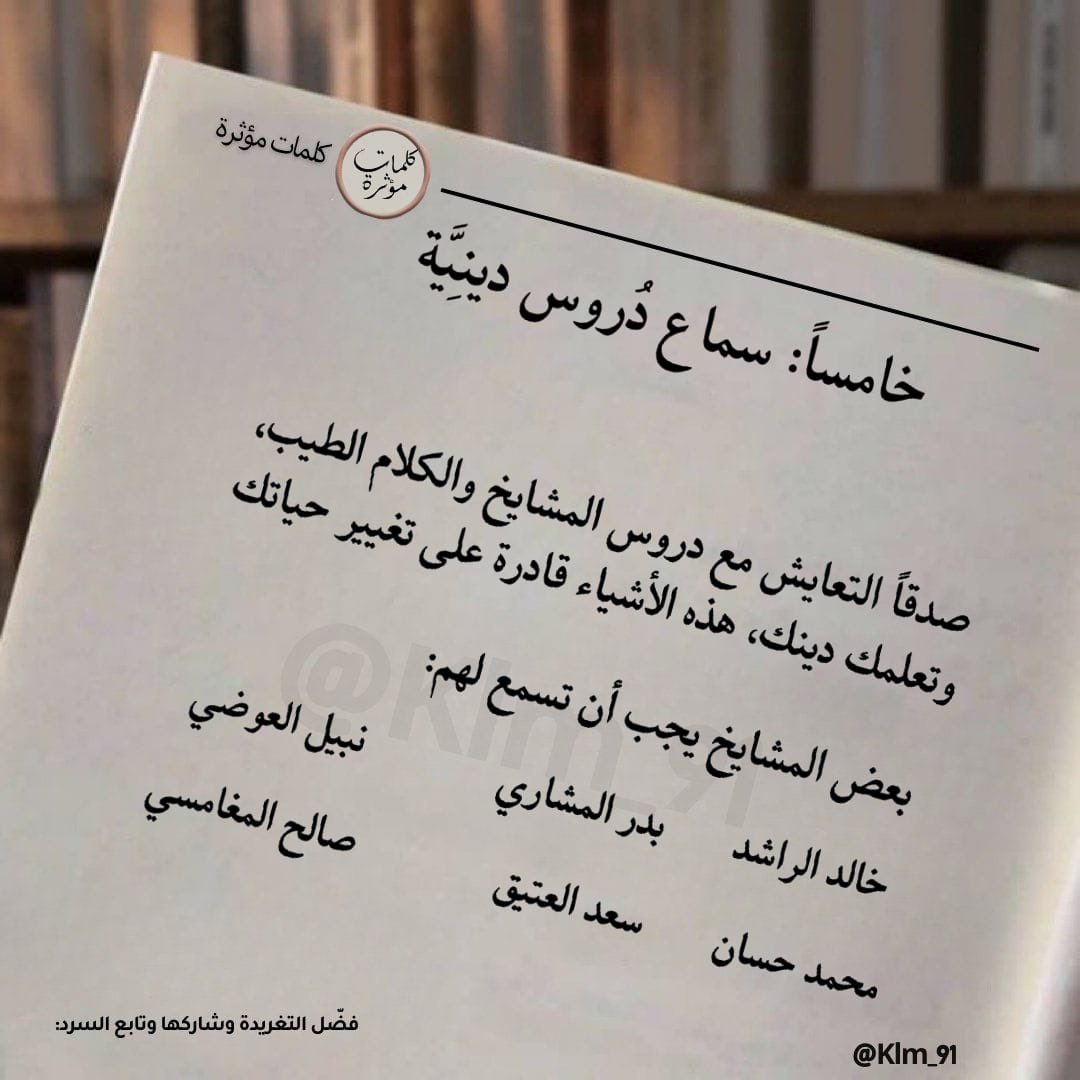 كلمات مؤثرة
كلمات
مؤثرة
خامساً: سماع دُروس دينِيَّة
صدقاً التعايش مع دروس المشايخ والكلام الطيب،
وتعلمك دينك، هذه الأشياء قادرة على تغيير حياتك
بعض المشايخ يجب أن تسمع لهم:
خالد الراشد بدر المشاري نبيل العوضي
محمد حسان سعد العتيق صالح المغامسي
@Klm_91
فضّل التغريدة وشاركها وتابع السرد:
@Klm_91